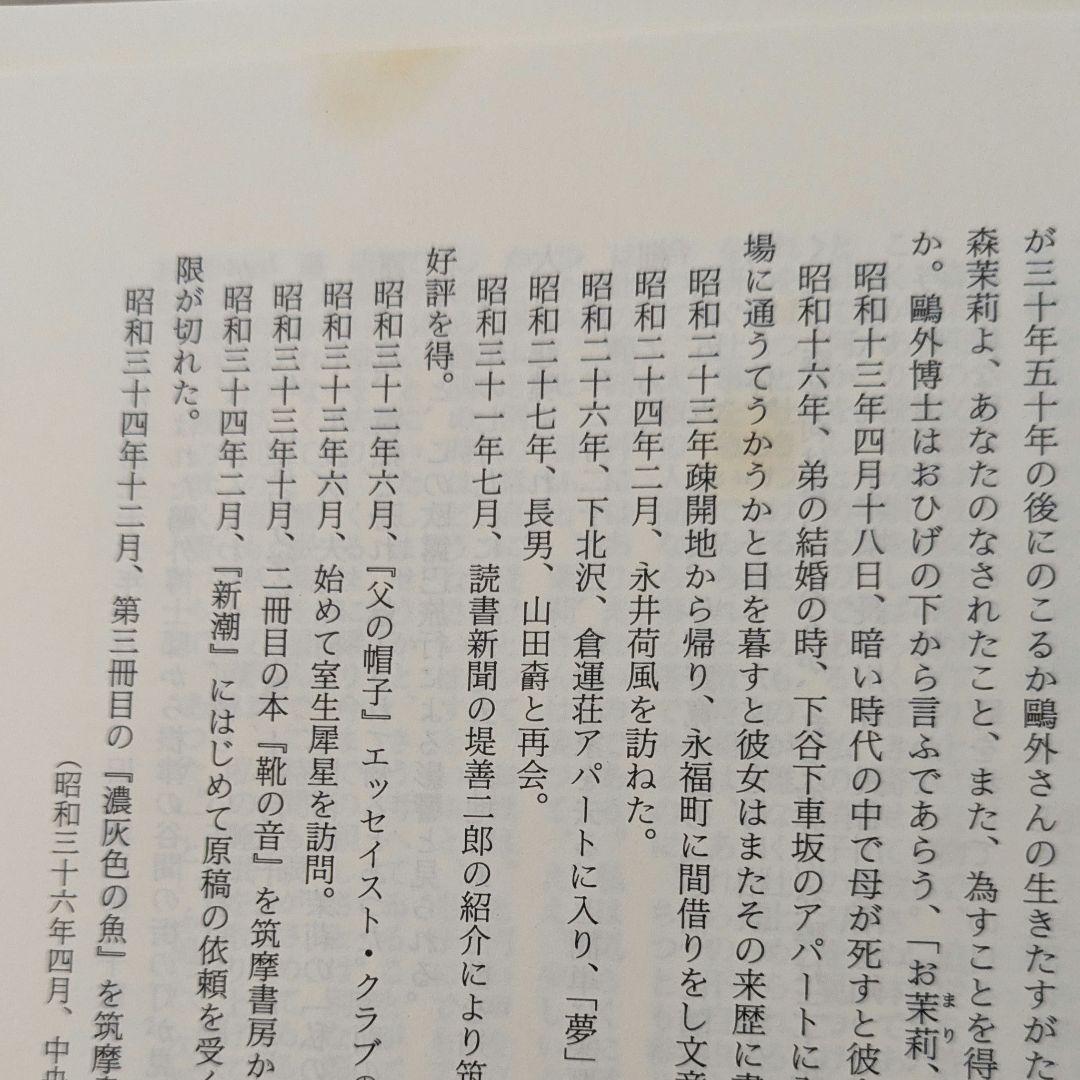 が三十年五十年の後にのこるか鷗外さんの生きたすがた
森茉莉よ、あなたのなされたこと、また、為すことを得
か。鷗外博士はおひげの下から言ふであらう、「お茉莉、
まり
昭和十三年四月十八日、暗い時代の中で母が死すと彼
昭和十六年、弟の結婚の時、下谷下車坂のアパートに
場に通うてうかうかと日を暮すと彼女はまたその来歴に
昭和二十三年疎開地から帰り、永福町に間借りをし文
昭和二十四年二月、永井荷風を訪ねた。
昭和二十六年、下北沢、倉運荘アパートに入り、「夢」
昭和二十七年、長男、山田𣝣と再会。
昭和三十一年七月、読書新聞の堤善二郎の紹介により筑
好評を得。
昭和三十二年六月、『父の帽子』エッセイスト・クラブの
昭和三十三年六月、始めて室生犀星を訪問。
昭和三十三年十月、二冊目の本『靴の音』を筑摩書房か
昭和三十四年二月、『新潮』にはじめて原稿の依頼を受
限が切れた。
昭和三十四年十二月、第三冊目の『濃灰色の魚』を筑摩
（昭和三十六年四月、中央